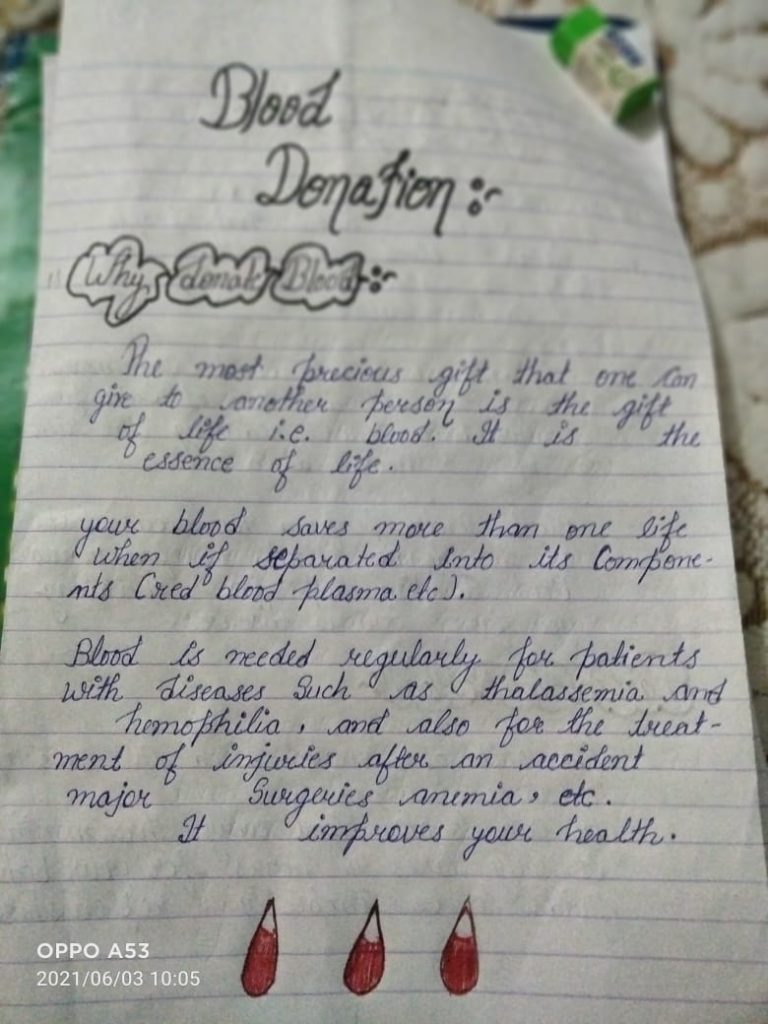 Blood
Donation :-
Why donate Blood :-
The most precious gift that one can
give to another person is the gift
of life i.e. blood. It is the
essence of life.
your blood saves more than one life
when if separated into its Compone-
nts (red blood plasma etc).
Blood is needed regularly for patients
with diseases Such as thalassemia and
hemophilia, and also for the treat-
ment of injuries after an accident
major Surgeries anemia, etc.
It improves your health.
OPPO A53
2021/06/03 10:05